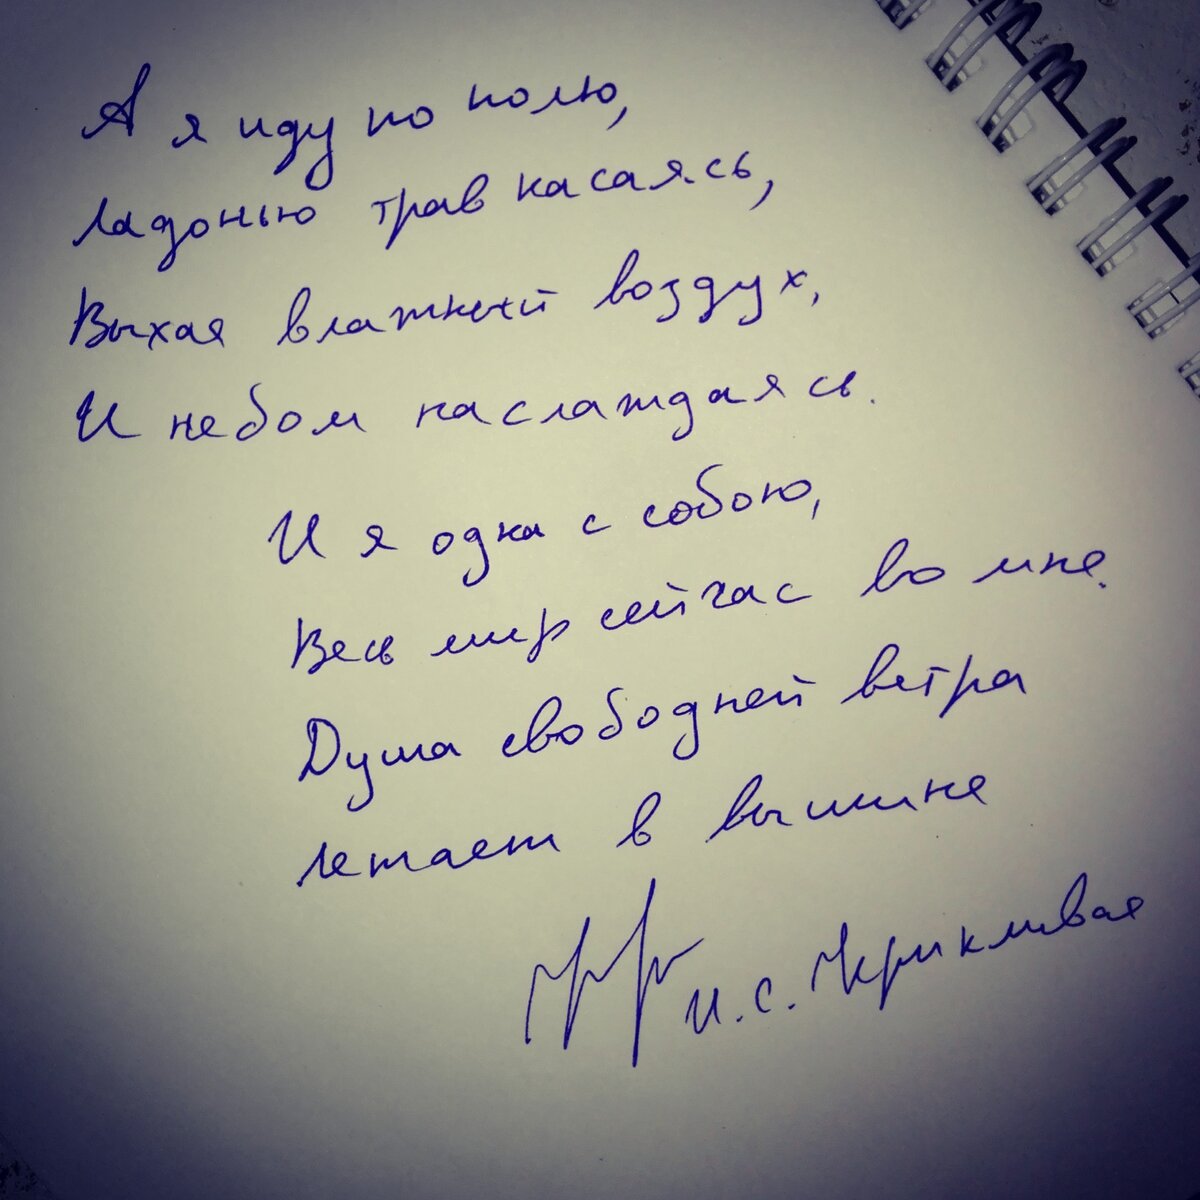 А я иду по полю,
ладонью трав касаясь,
Вдыхая влажный воздух,
И небом наслаждаясь.
И я одна с собою,
Весь мир сейчас во мне.
Душа свободней ветра
летает в вышине
И.С. Крикливая